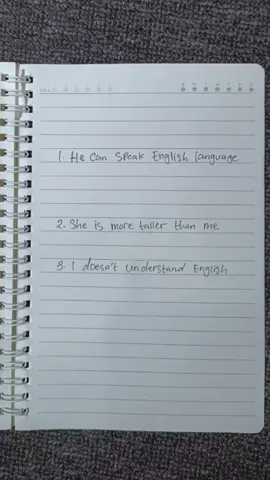 1. He can speak English language
2. She is more taller than me
3. I doesn't understand English